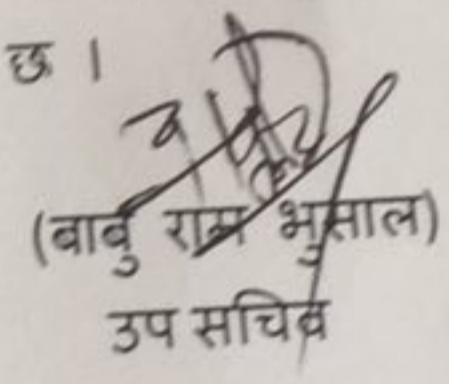 छ ।
(बाबु राम भुसाल)
उप सचिव